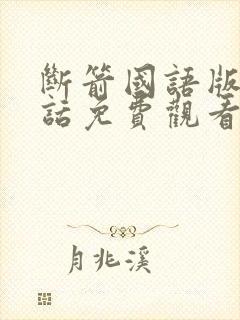 斷箭國語版
話免費觀看
月兆溪